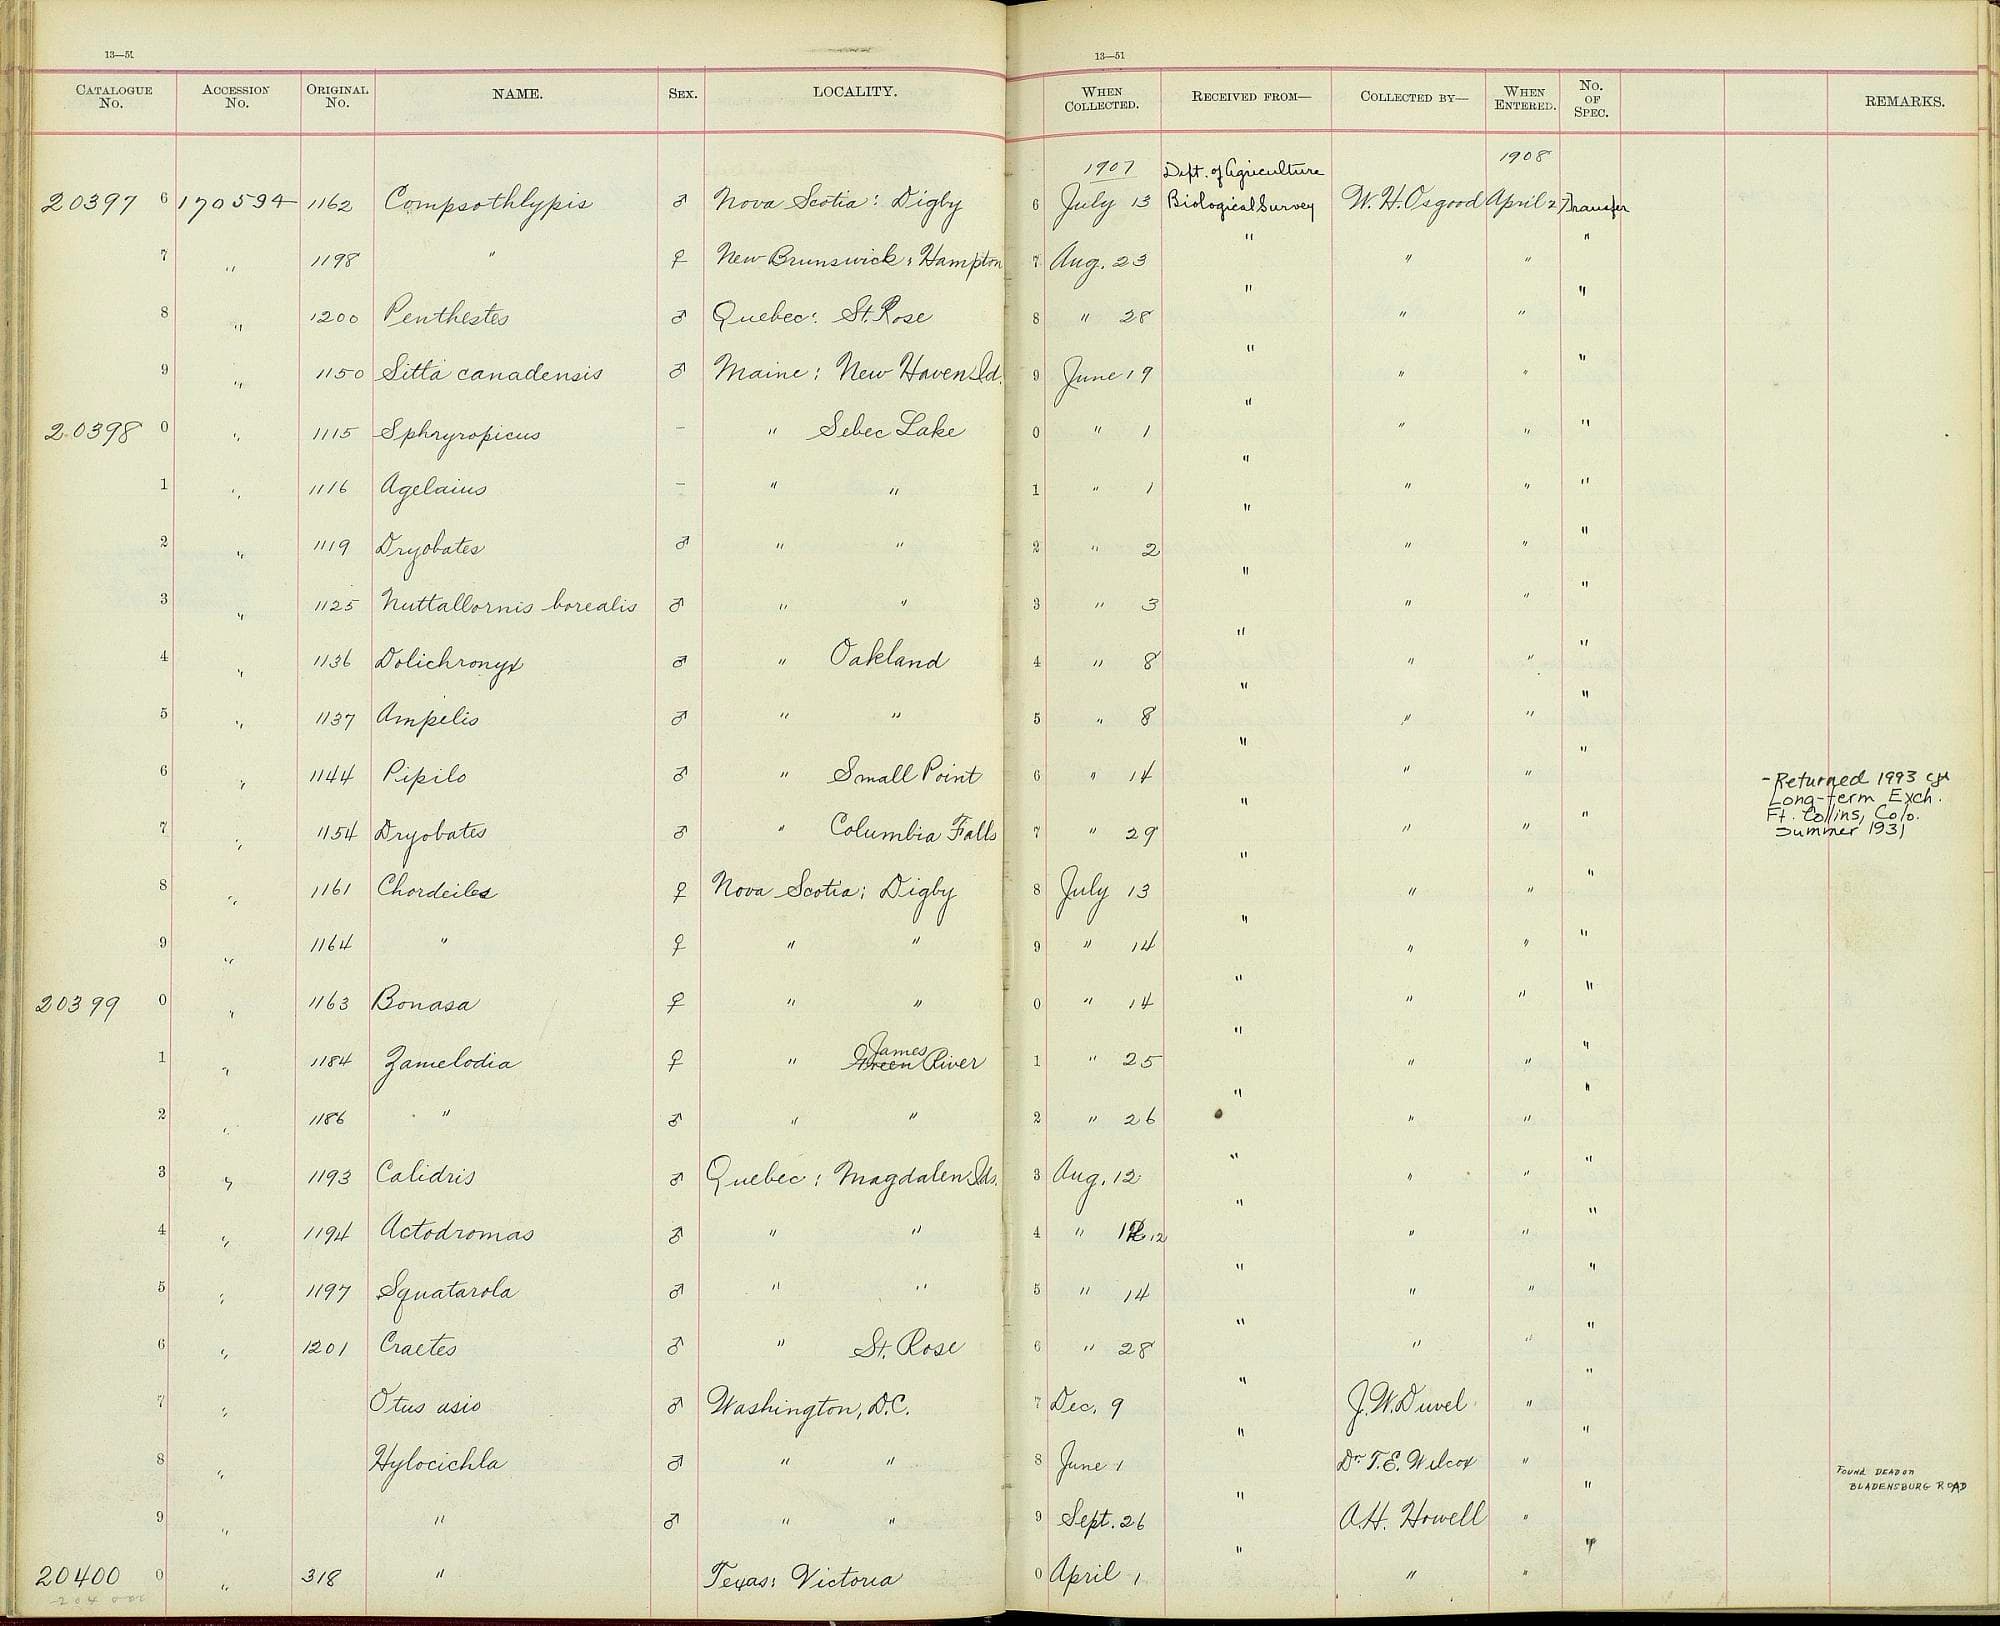 13—51
13—51
CATALOGUE No. ACCESSION No. ORIGINAL No. NAME. SEX. LOCALITY. WHEN COLLECTED. RECEIVED FROM— COLLECTED BY— WHEN ENTERED. No. OF SPEC. REMARKS.
1907 Dept. of Agriculture 1908
20397 6 170594 1162 Compsothlypis ♂ Nova Scotia: Digby 6 July 13 Biological Survey W. H. Osgood April 27 Transfer
7 " 1198 " ♀ New Brunswick: Hampton 7 Aug. 23 " " " "
8 " 1200 Penthestes ♂ Quebec: St. Rose 8 " 28 " " " "
9 " 1150 Sitta canadensis ♂ Maine: New Haven Id. 9 June 19 " " " "
20398 0 " 1115 Sphryropicus - " Sebec Lake 0 " 1 " " " "
1 " 1116 Agelaius - " " 1 " 1 " " " "
2 " 1119 Dryobates ♂ " " 2 " 2 " " " "
3 " 1125 Nuttallornis borealis ♂ " " 3 " 3 " " " "
4 " 1136 Dolichronyx ♂ " Oakland 4 " 8 " " " "
5 " 1137 Ampelis ♂ " " 5 " 8 " " " "
6 " 1144 Pipilo ♂ " Small Point 6 " 14 " " " " -Returned 1993
Long-term Exch.
Ft. Collins, Colo.
7 " 1154 Dryobates ♂ " Columbia Falls 7 " 29 " " " " Summer 1931
8 " 1161 Chordeiles ♀ Nova Scotia: Digby 8 July 13 " " " "
9 " 1164 " ♀ " " 9 " 14 " " " "
20399 0 " 1163 Bonasa ♀ " " 0 " 14 " " " "
James
1 " 1184 Zamelodia ♀ " Green River 1 " 25 " " " "
2 " 1186 " ♂ " " 2 " 26 " " " "
3 " 1193 Calidris ♂ Quebec: Magdalen Ids. 3 Aug. 12 " " " "
4 " 1194 Actodromas ♂ " " 4 " 12 " " " "
5 " 1197 Squatarola ♂ " " 5 " 14 " " " "
6 " 1201 Craetes ♂ " St. Rose 6 " 28 " " " "
7 " Otus asio ♂ Washington, D.C. 7 Dec. 9 " J. W. Duvel " "
8 " Hylocichla ♂ " " 8 June 1 " Dr. T. E. Wilcox " " FOUND DEAD ON
BLADENSBURG ROAD
9 " " ♂ " " 9 Sept. 26 " A. H. Howell " "
20400 0 " 318 " Texas: Victoria 0 April 1 " " " "